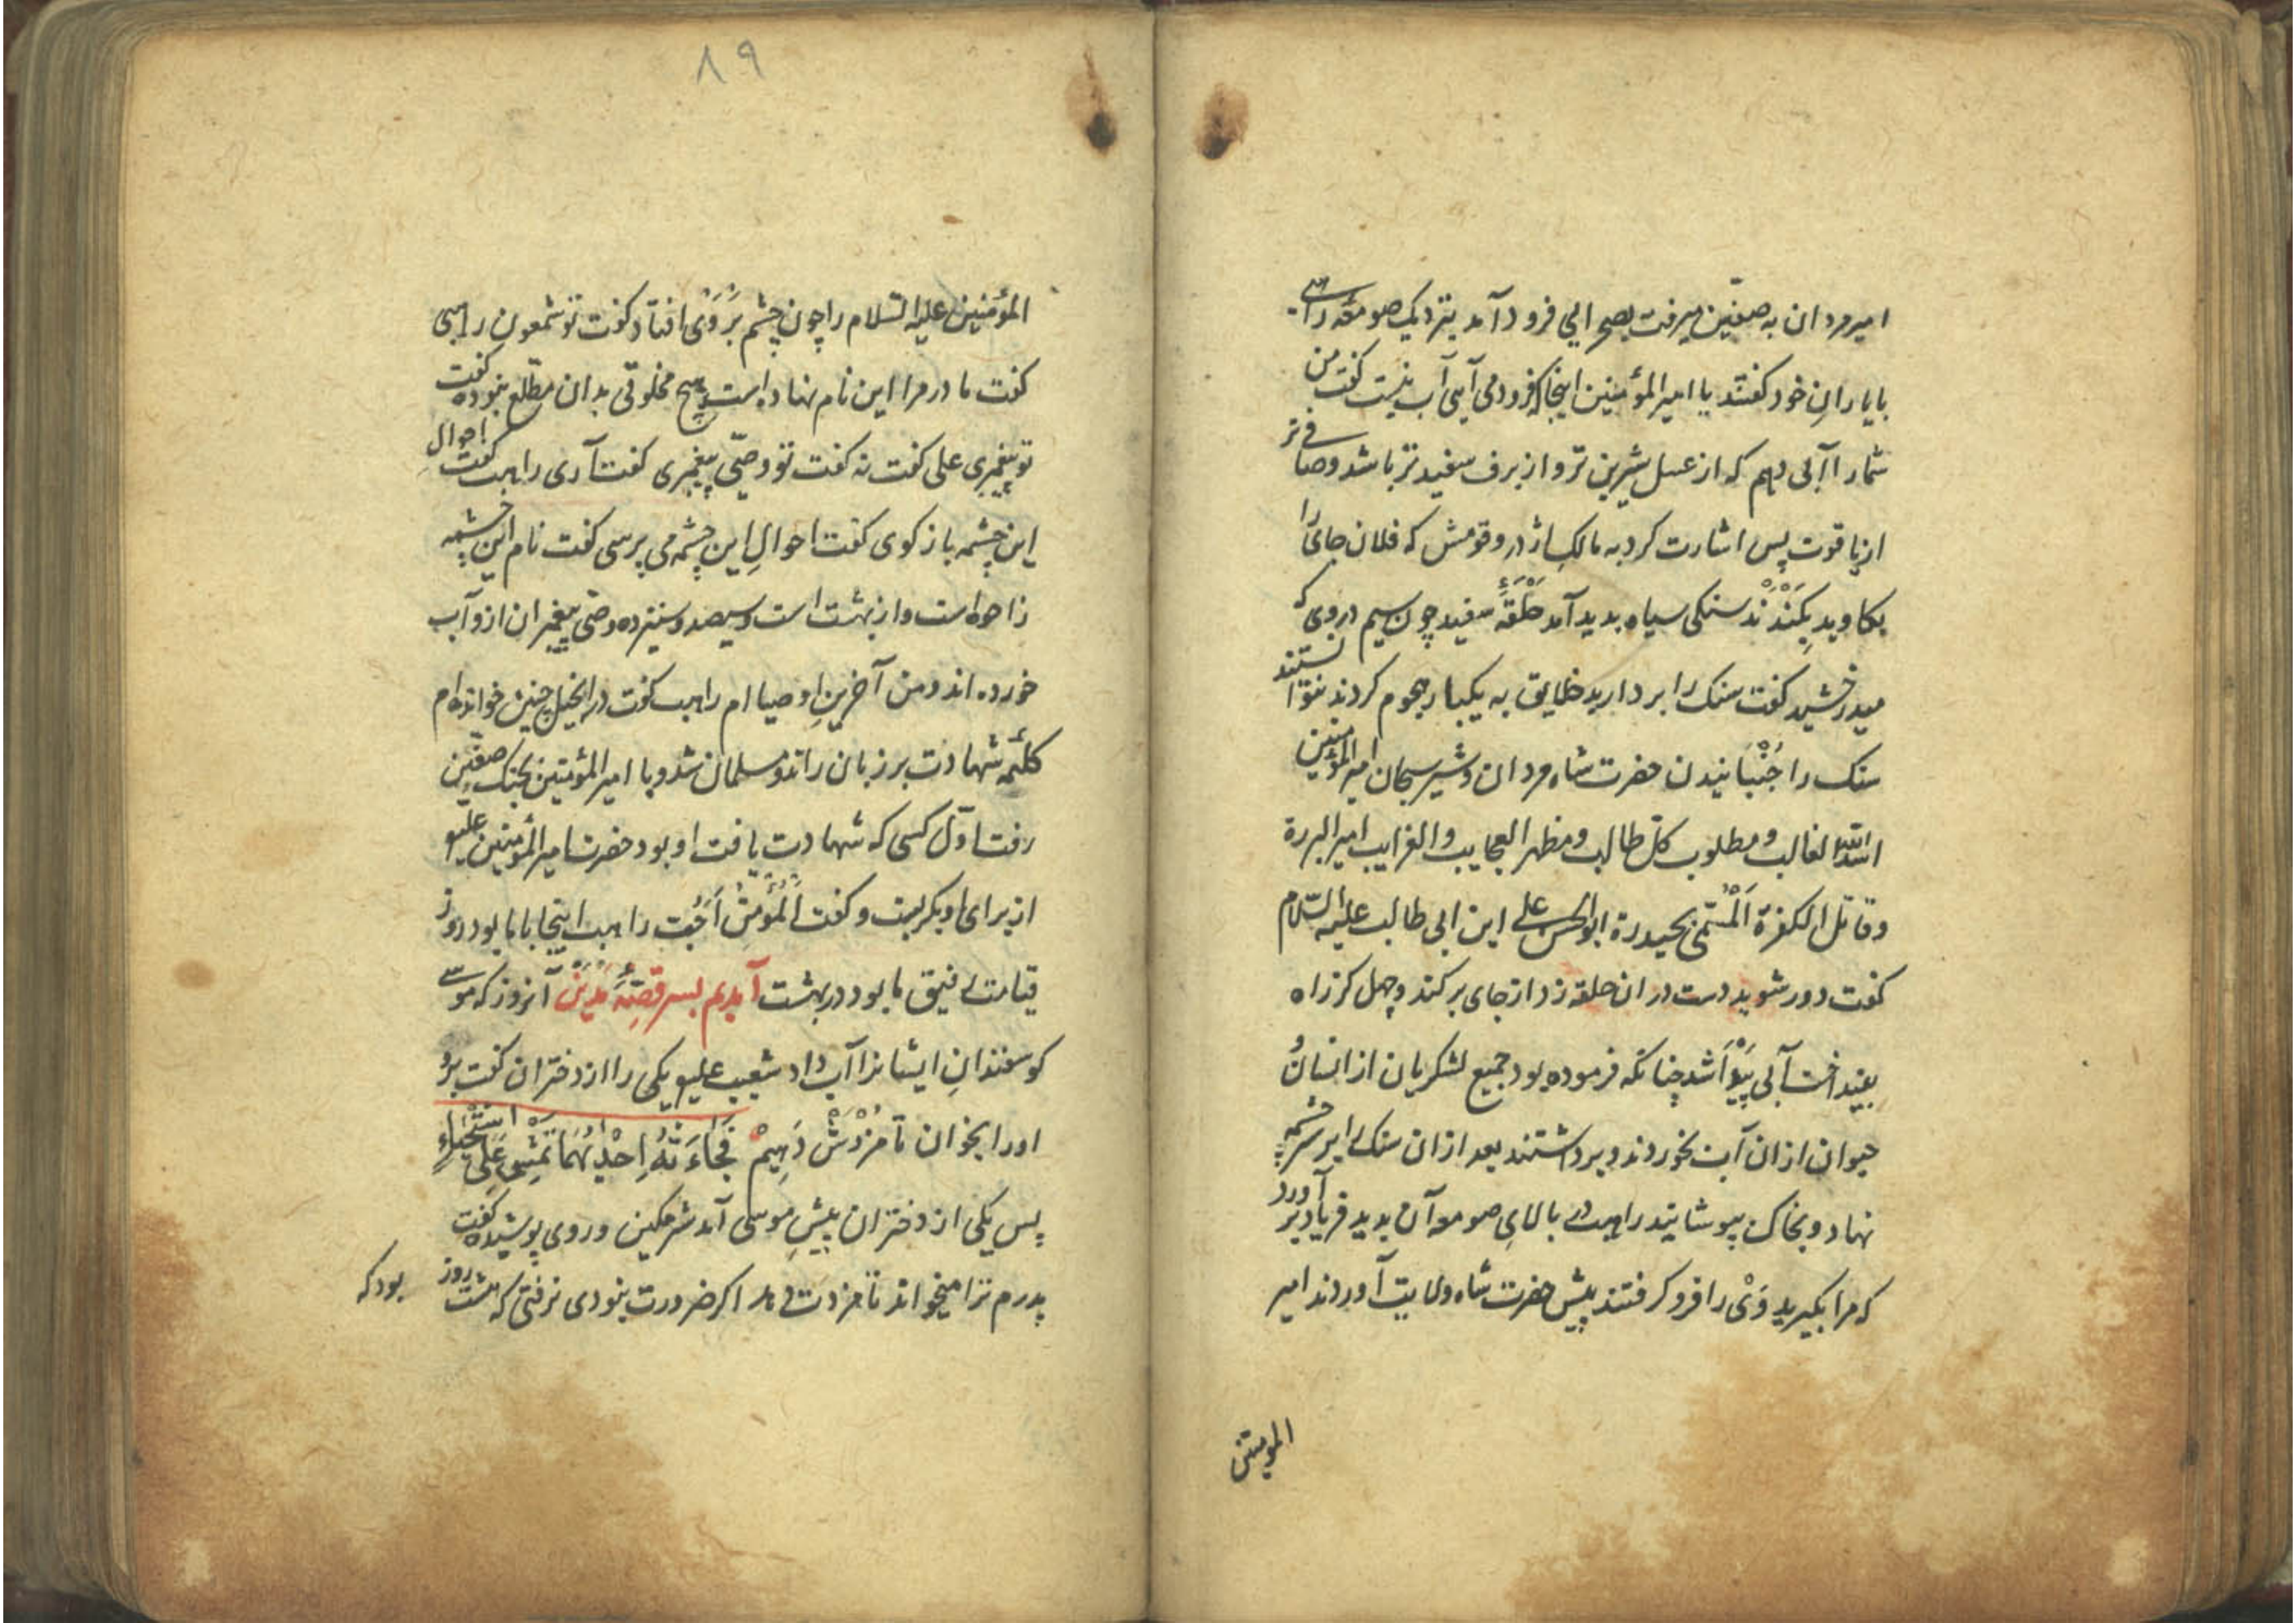 امیر مردان به صفّین میرفت بصحرایی فرود آمد بنزدیک صومعهٔ راهبی
بایارانِ خود کفتند یا امیر المؤمنین اینجا که فرود می آیی آب نیست کفت من
شمارا آبی دهم که از عسل شیرین تر و از برف سفید تر باشد و صافی تر
از یاقوت پس اشارت کرد به مالکِ اژدر و قومش که فلان جای را
بکاوید بِکَنْدَنْد سنکی سیاه بدید آمد حَلْقَهٔ سفید چون سیم در وی که
میدرخشید کفت سنک را بردارید خلایق به یکبار هجوم کردند نتوانستند
سنک را جُنْبانیدن حضرت شاه مردان و شیر سبحان امیر المؤمنین
اسد اللّه الغالب و مطلوب کلّ طالب و مظهر العجایب و الغرایب امیر البررة
و قاتل الکفرة اَلْمُسَمّی بحیدرة ابو الحسن علی ابن ابی طالب علیه السّلام
کفت دور شوید دست در ان حلقه زد از جای برکند و چهل کز راه
بینداخت آبی پَیْدَا شد چنانکه فرموده بود جمیع لشکریان از انسان و
حیوان ازان آب بخوردند و برداشتند بعد ازان سنک را بر سر چشمه
نهاد و بخاک بپوشانید راهب در بالایِ صومعه آن بدید فریاد بر آورد
که مرا بکیرید وَیْ را فرو کرفتند پیش حضرت شاه ولایت آوردند امیر
المومنین
۸۹
المؤمنین علیه السّلام را چون چشم بَرْوَیْ افتاد کفت تو شمعون راهبی
کفت مادر مرا این نام نهاده است و هیچ مخلوقی بدان مطّلع نبوده کفت
تو پیغمبری علی کفت نه کفت تو وصیّ پیغمبری کفت آری راهب کفت احوالِ
این چشمه باز کوی کفت احوالِ این چشمه می پرسی کفت نام این چشمه
زاحواست و از بهشت است و سیصد و سیزده وصی پیغمبران ازو آب
خورده اند و من آخرینِ اوصیاام راهب کفت در انجیل چنین خوانده ام
کلمهٔ شهادت بر زبان راند و مسلمان شد و با امیر المؤمنین بجنک صفّین
رفت اوّل کسی که شهادت یافت او بود حضرت امیر المؤمنین علیه
از برای او بکریست و کفت اَلْمُؤْمِنُ اَخِیْت راهب اینجا باما بود روز
قیامت رفیق ما بود در بهشت آمدیم بسرِ قصّهٔ مَدْیَنْ آنروز که موسی
کوسفندانِ ایشانرا آب داد شعیب علیه یکی را از دختران کفت برو
اورا بخوان تا مُزْدَشْ دَهِیمْ فَجَاءَتْهُ اِحْدٰیهُمَا تَمْشِی عَلَی اسْتِحْیَاءٍ
پس یکی از دختران پیشِ موسی آمد شرمکین و روی پوشیده کفت
پدرم ترا میخواند تا مزدت دهد اکر ضرورت نبودی نرفتی که هشت روز
بود که